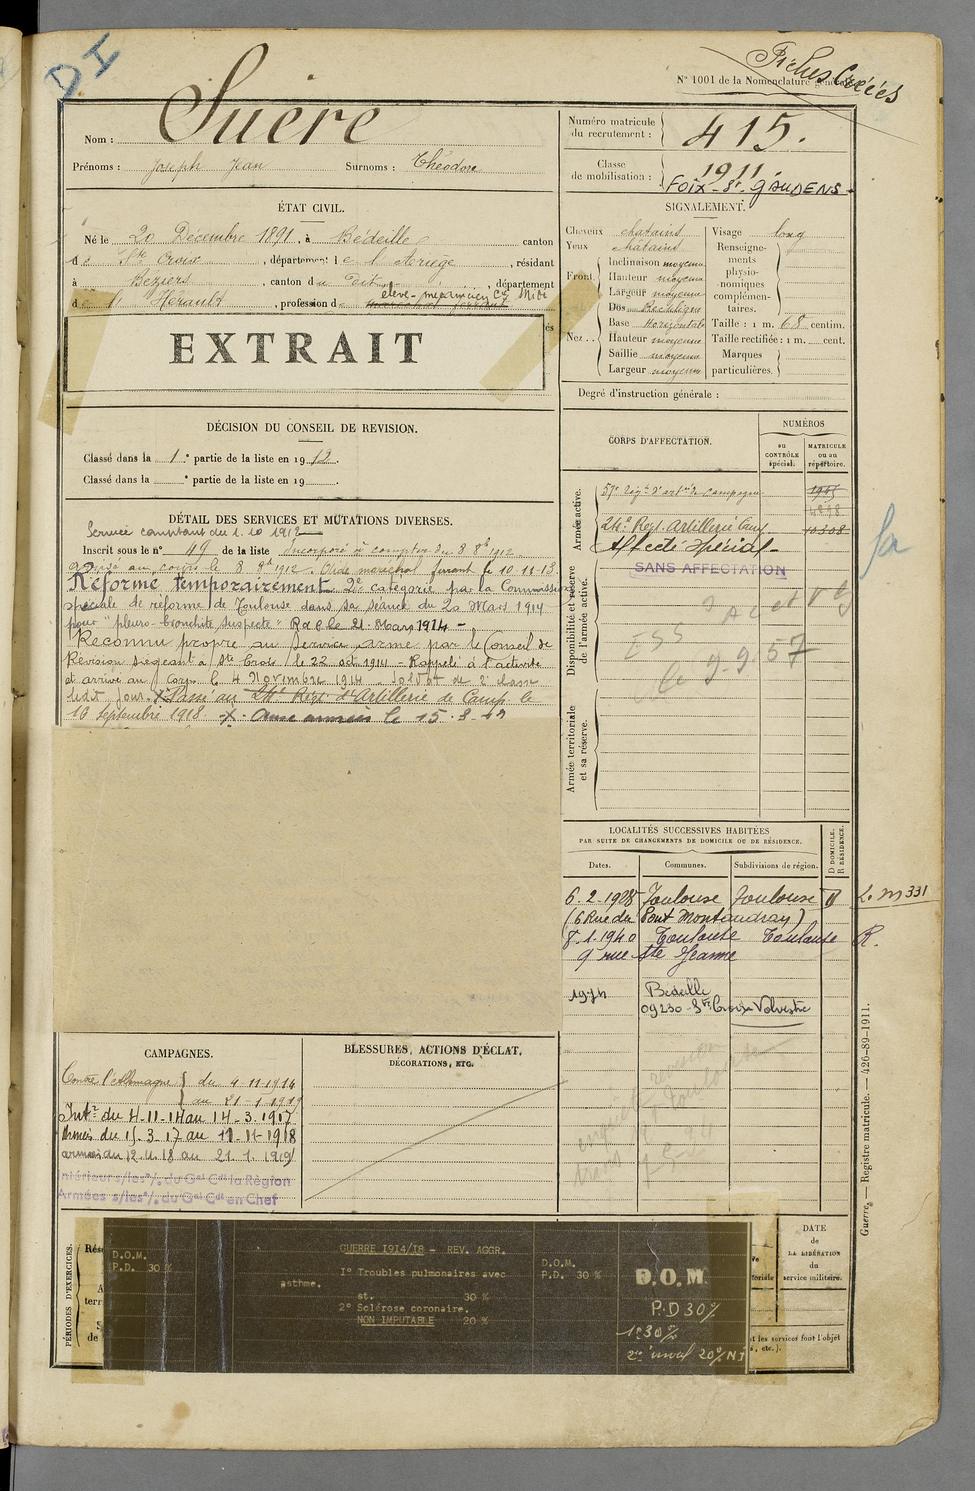 DI
Fiches Créées
N° 1001 de la Nomenclature générale
Nom : Suère
Prénoms : Joseph Jean Surnoms : Théodore
Numéro matricule du recrutement : 415.
Classe de mobilisation : 1911
FOIX-St GAUDENS.
ÉTAT CIVIL.
Né le 20 Décembre 1891, à Bédeille canton
de Ste Croix, département de l'Ariège, résidant
à Béziers, canton du dit, département
de l'Hérault, profession de maréchal ferrant
élève-mécanicien Cie Midi
EXTRAIT
SIGNALEMENT.
Cheveux châtains
Yeux châtains
Front
Inclinaison moyenne
Hauteur moyenne
Largeur moyenne
Nez
Dos Rectiligne
Base Horizontale
Hauteur moyenne
Saillie moyenne
Largeur moyenne
Visage long
Renseignements physionomiques complémentaires.
Taille : 1 m. 68 centim.
Taille rectifiée : 1 m. cent.
Marques particulières.
Degré d'instruction générale :
DÉCISION DU CONSEIL DE REVISION.
Classé dans la 1e partie de la liste en 1912.
Classé dans la e partie de la liste en 19
DÉTAIL DES SERVICES ET MUTATIONS DIVERSES.
Service comptant du 1.10 1912
Inscrit sous le n° 49 de la liste Incorporé à compter du 8 8bre 1912
au corps le 8 8bre 1912. Aide maréchal ferrant le 10-11-13.
Réformé temporairement 2e catégorie par la Commission
spéciale de réforme de Toulouse dans sa séance du 20 Mars 1914
pour "pleuro-bronchite suspecte" R d C le 21 Mars 1914 -
Reconnu propre au service armé par le Conseil de
Révision siégeant à Ste Croix le 22 oct. 1914 - Rappelé à l'activité
et arrivé au Corps le 4 Novembre 1914 soldat de 2e classe
ledit jour. Passé au 24e Régt d'Artillerie de Camp. le
10 septembre 1918.
CORPS D'AFFECTATION.
NUMÉROS
au CONTRÔLE spécial.
MATRICULE ou au répertoire.
Armée active.
57e Régt d'artie de campagne
24e Régt Artillerie Camp 10308
Affecté Spécial
SANS AFFECTATION
Disponibilité et réserve de l'armée active.
le 9.9.57
Armée territoriale et sa réserve.
LOCALITÉS SUCCESSIVES HABITÉES
PAR SUITE DE CHANGEMENTS DE DOMICILE OU DE RÉSIDENCE.
Dates. Communes. Subdivisions de région.
D DOMICILE. R RÉSIDENCE.
6.2.1928 Toulouse Toulouse D L. M 331
(6 Rue du Pont Montaudran)
8.1.1940 Toulouse Toulouse R.
9 rue Ste Jeanne
1974 Bédeille
09230 - Ste Croix Volvestre
CAMPAGNES.
Contre l'Allemagne du 4-11-1914
au 21-1-1919
Intr du 4-11-14 au 14.3.1917
Armées du 15.3.17 au 11-11-1918
armées du 12.11.18 au 21.1.1919
Intérieur s/les °/. du Gal Cdt la Région
Armées s/les °/. du Gal Cdt en Chef
BLESSURES, ACTIONS D'ÉCLAT,
DÉCORATIONS, ETC.
Guerre. — Registre matricule. — 426-89-1911.
PÉRIODES D'EXERCICES.
D.O.M.
P.D. 30 %
GUERRE 1914/18 - REV. AGGR.
1° Troubles pulmonaires avec
asthme.
st. 30 %
2° Sclérose coronaire.
NON IMPUTABLE 20 %
D.O.M.
P.D. 30 %
D.O.M
P.D 30%
1° 30%
DATE
de
LA LIBÉRATION
du
service militaire.
t les services font l'objet
, etc.).